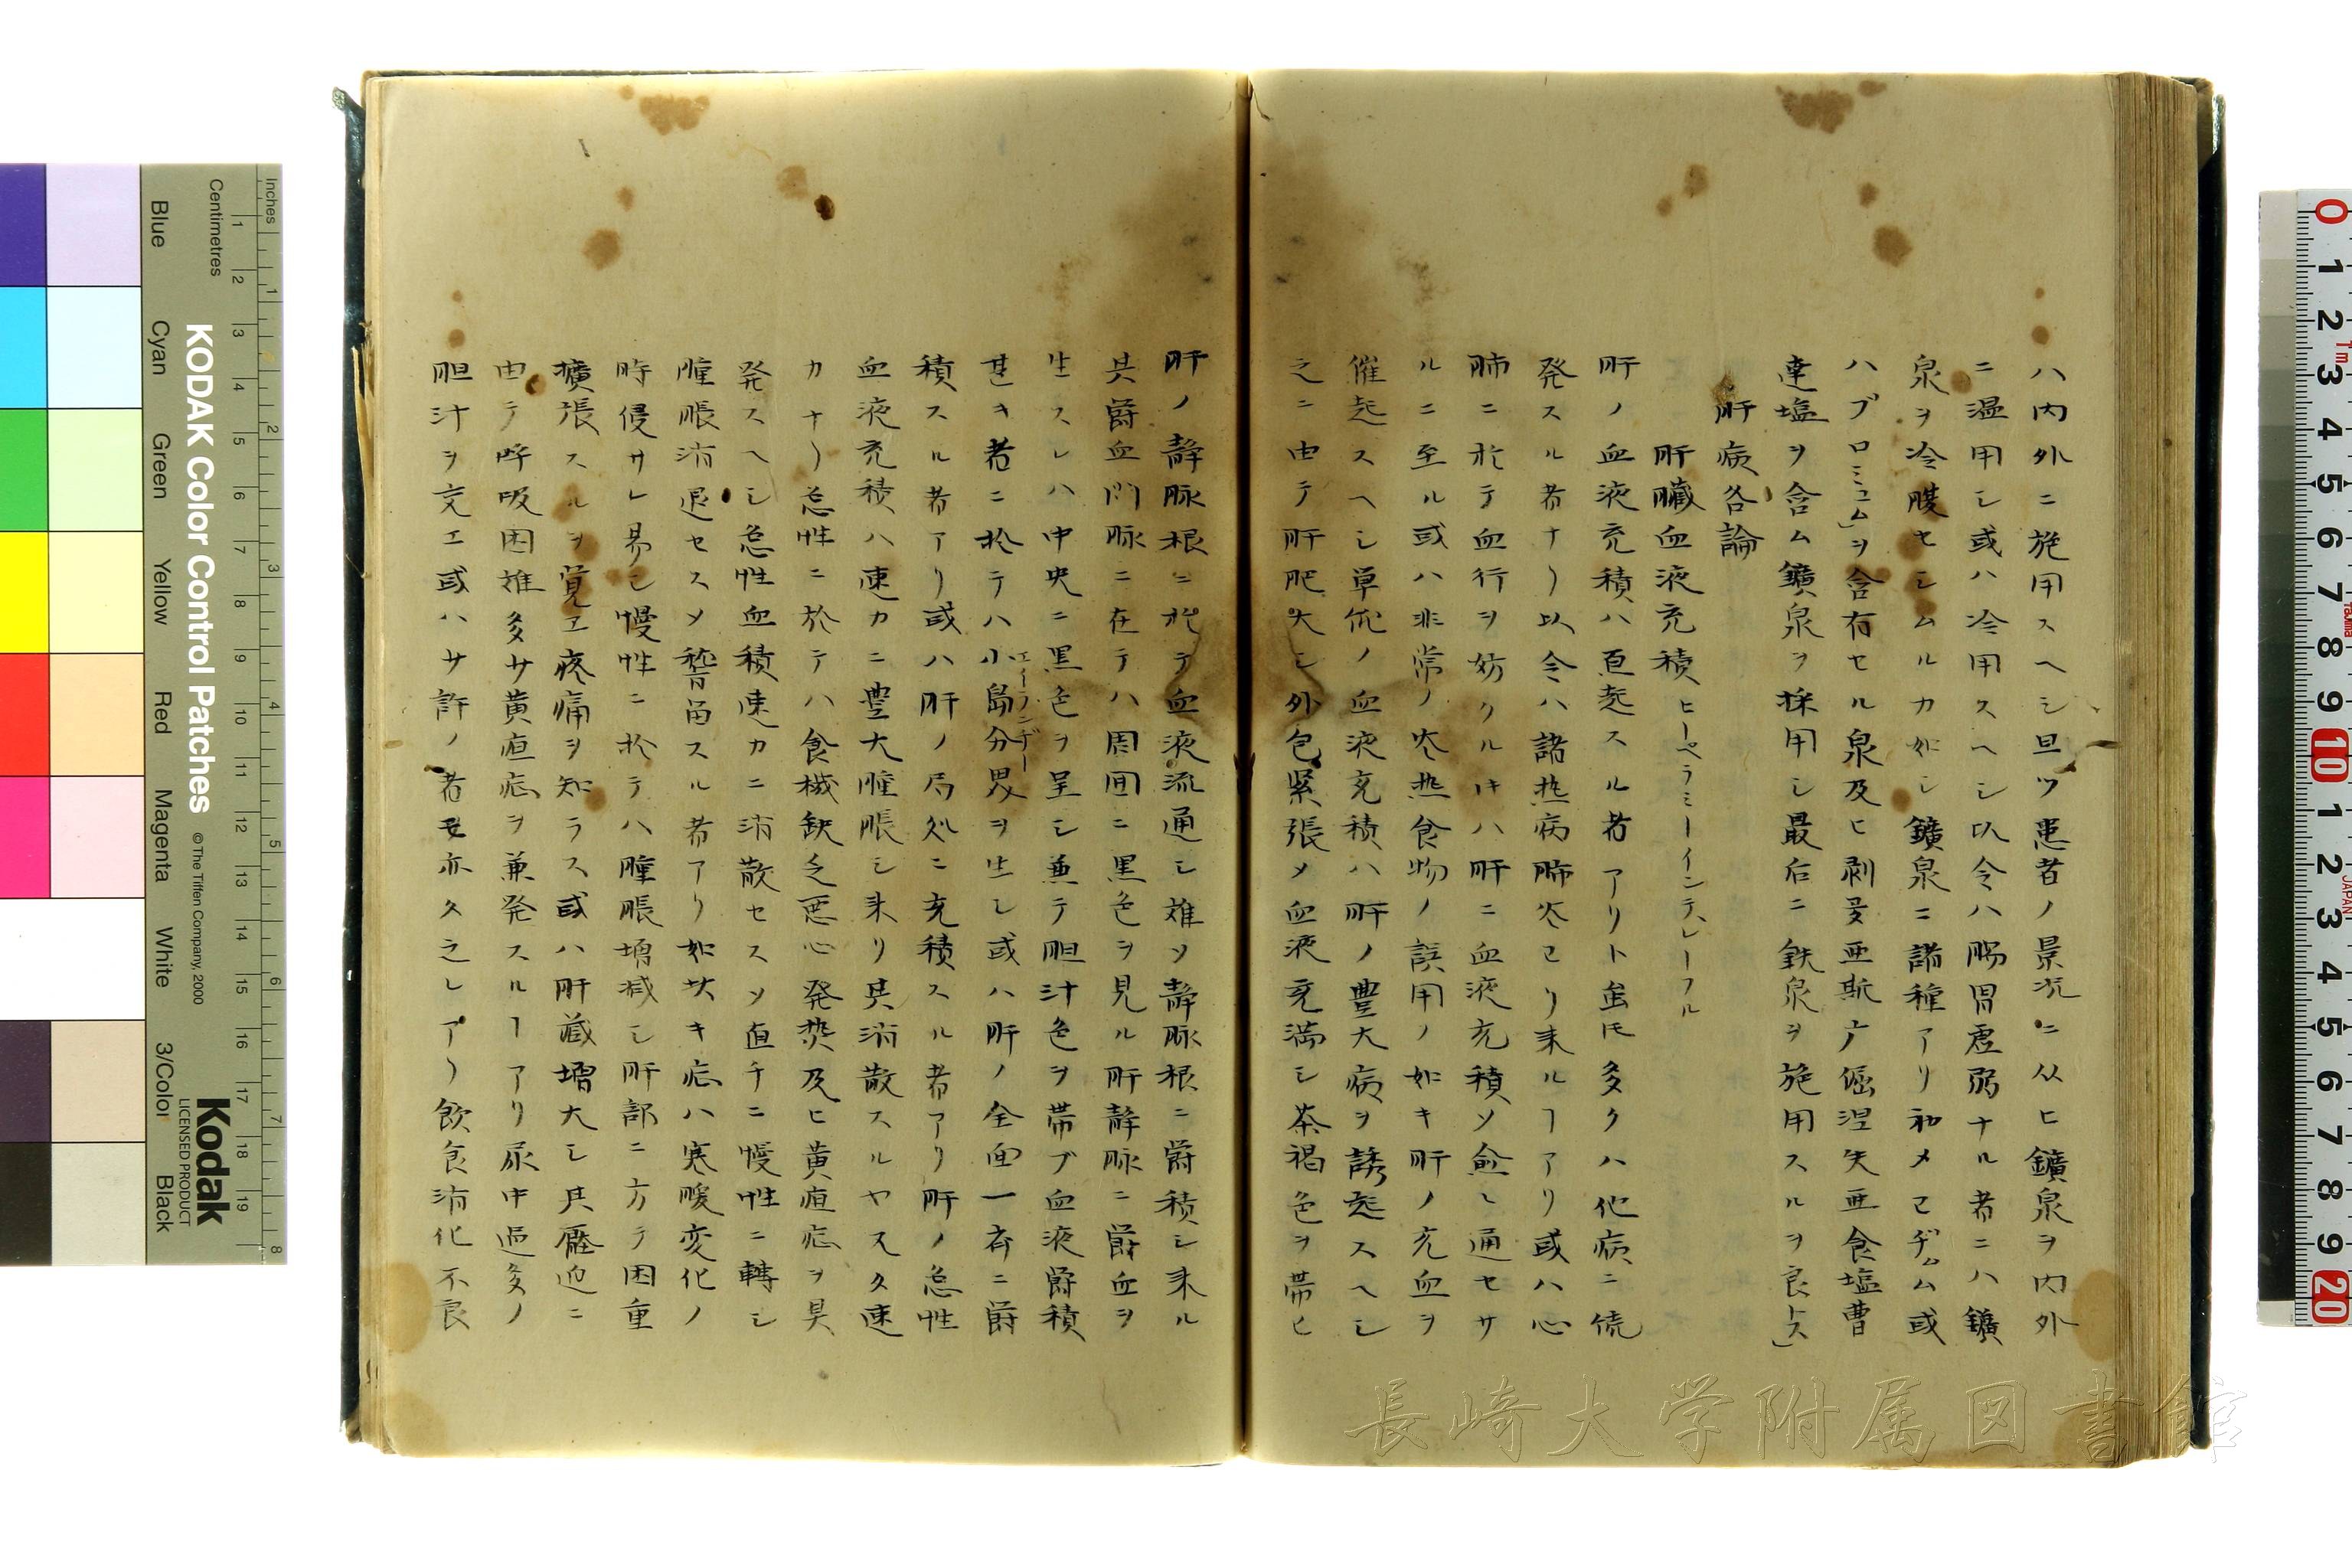 ハ内外ニ施用スヘシ且ツ患者ノ景况ニ从ヒ鑛泉ヲ内外
ニ温用シ或ハ冷用スヘシ以令ハ腸胃虚弱ナル者ニハ鑛
泉ヲ冷腹セシムルカ如シ鑛泉ニ諸種アリ初メヨヂゥム或
ハブロミュム」ヲ含有セル泉及ヒ剥篤亜斯
達塩ヲ含ム鑛泉ヲ採用シ最后ニ鉄泉ヲ施用スルヲ良トス」
肝病各論
肝臓血液充積ヒーペラミーインテレーフル
肝ノ血液充積ハ直起スル者アリト虽𪜈多クハ他病ニ続
発スル者ナリ以令ハ諸热病肺炎ヨリ来ルヿアリ或ハ心
肺ニ於テ血行ヲ妨クルキハ肝ニ血液充積ソ愈々通セサ
ルニ至ル或ハ非常ノ炎热食物ノ誤用ノ如キ肝ノ充血ヲ
催起スヘシ単他ノ血液充積ハ肝ノ豊大病ヲ誘起スヘシ
之ニ由テ肝肥大シ外包緊張メ血液充満シ茶褐色ヲ帯ヒ
肝ノ静脉根ニ於テ血液流通シ难ソ静脉根ニ欝積シ来ル
其欝血門脉ニ在テハ周囲ニ黒色ヲ見ル肝静脉ニ欝血ヲ
生スレハ中央ニ黒色ヲ呈シ兼テ胆汁色ヲ帯ブ血液欝積
甚キ者ニ於テハ小島分界ヲ生シ或ハ肝ノ全面一斉ニ欝
エイランデー
積スル者アリ或ハ肝ノ局処ニ充積スル者アリ肝ノ急性
血液充積ハ速カニ豊大腫脹シ来リ其消散スルヤ又タ速
カナリ急性ニ於テハ食機缺乏悪心発热及ヒ黄疸症ヲ具
発スヘシ急性血積速カニ消散セスソ直チニ慢性ニ轉シ
腫脹消退セスメ稽留スル者アリ如此キ症ハ寒暖変化ノ
時侵サレ易シ慢性ニ於テハ腫脹増减シ肝部ニ方テ困重
擴張スルヲ覚エ疼痛ヲ知ラス或ハ肝蔵増大シ其壓迫ニ
由テ呼吸困难多サ黄疸症ヲ兼発スルヿアリ尿中過多ノ
胆汁ヲ交エ或ハサ許ノ者モ亦タ之レアリ飲食消化不良